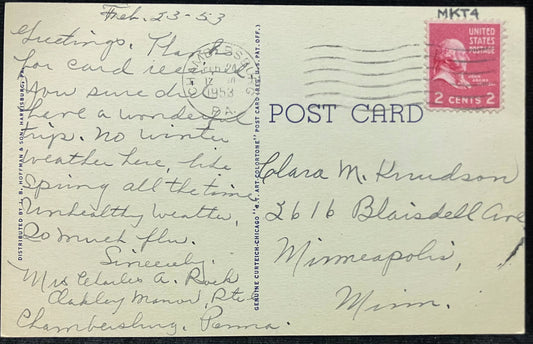 Feb. 23-53
Greetings. Thanks
for card received
You sure did
have a wonderful
trip. No winter
weather here, like
Spring all the time
Unhealthy weather,
So much flu.
Sincerely.
Mrs Charles A. Rock
Oakley Manor, Rt.
Chambersburg. Penna.
DISTRIBUTED BY J. B. HOFFMAN & SON, HARRISBURG, PA.
GENUINE CURTEICH-CHICAGO "C.T. ART COLORTONE" POST CARD (REG. U.S. PAT. OFF.)
CHAMBERSBURG
1953
PA.
MKT4
UNITED
STATES
POSTAGE
JOHN
ADAMS
2 CENTS 2
POST CARD
Clara M. Knudson
2616 Blaisdell Ave
Minneapolis,
Minn.